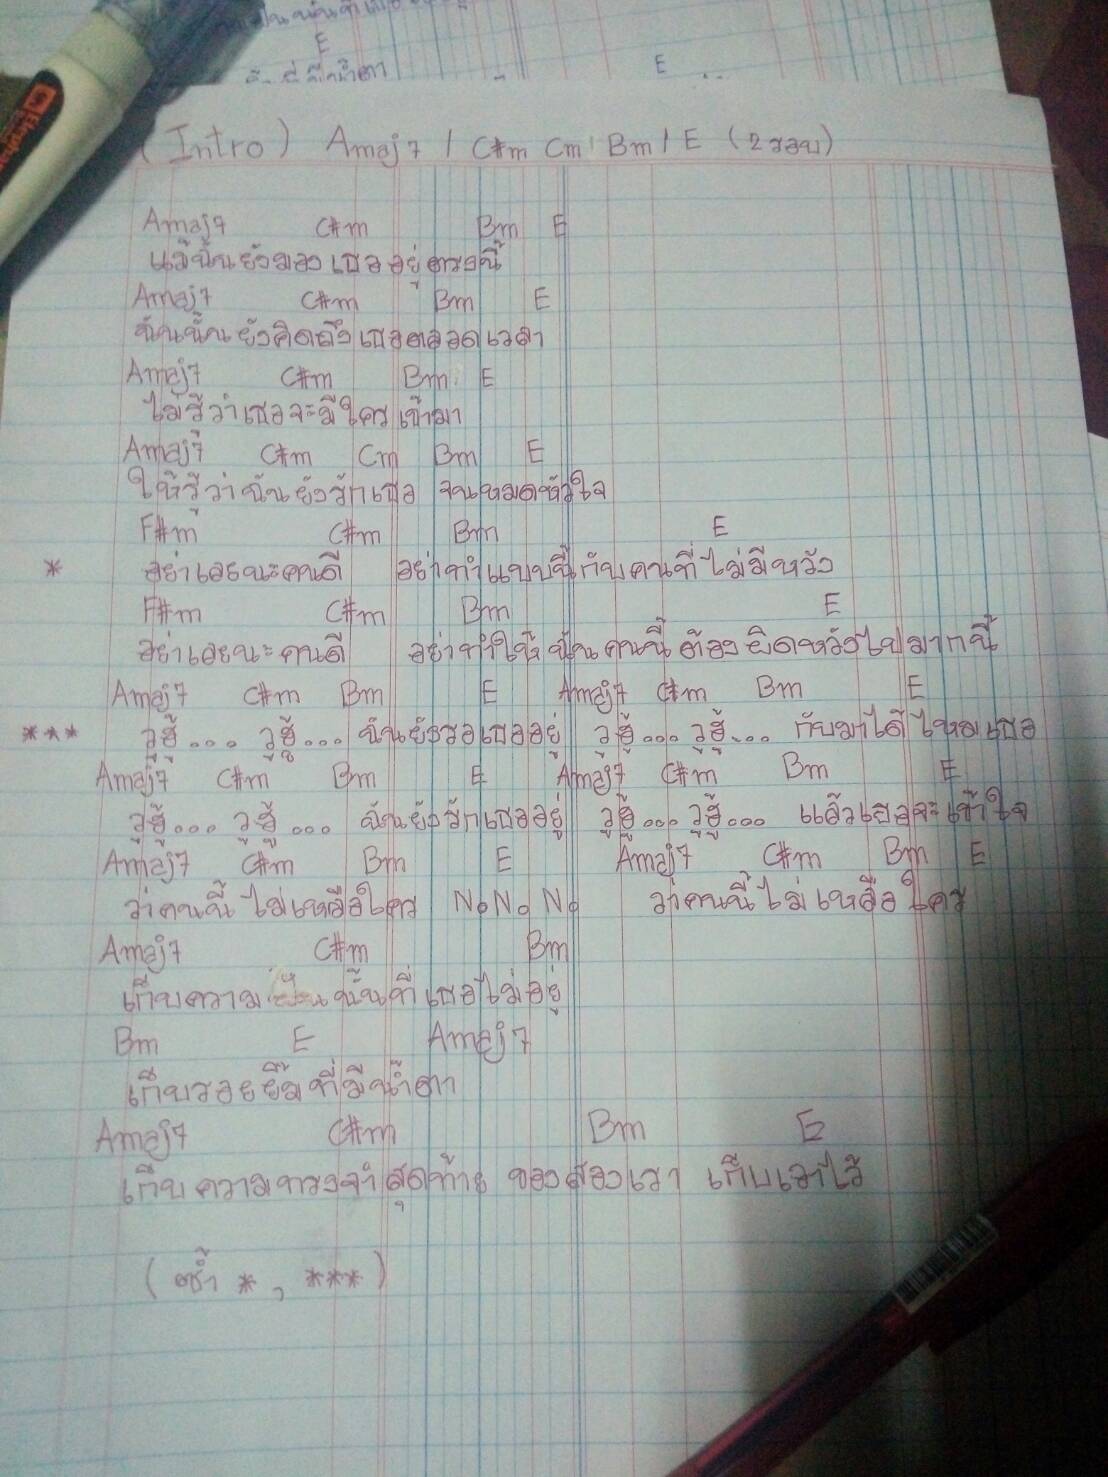 E
E
(Intro) Amaj7 / C#m Cm / Bm / E (2 รอบ)
Amaj7 C#m Bm E
แม้ฉันยังมองเธออยู่ตรงนี้
Amaj7 C#m Bm E
ฉันนั้นยังคิดถึงเธอตลอดเวลา
Amaj7 C#m Bm E
ไม่รู้ว่าเธอจะมีใครเข้ามา
Amaj7 C#m Cm Bm E
ให้รู้ว่าฉันยังรักเธอ จนหมดหัวใจ
F#m C#m Bm E
* อย่าเลยนะคนดี อย่าทำแบบนี้กับคนที่ไม่มีหวัง
F#m C#m Bm E
อย่าเลยนะคนดี อย่าทำให้ฉันคนนี้ต้องผิดหวังไปมากนี้
Amaj7 C#m Bm E Amaj7 C#m Bm E
*** วูฮู้... วูฮู้... ฉันยังรอเธออยู่ วูฮู้... วูฮู้... กับมาได้ไหมเธอ
Amaj7 C#m Bm E Amaj7 C#m Bm E
วูฮู้... วูฮู้... ฉันยังรักเธออยู่ วูฮู้... วูฮู้... แล้วเธอจะเข้าใจ
Amaj7 C#m Bm E Amaj7 C#m Bm E
ว่าคนนี้ไม่เหลือใคร No No No ว่าคนนี้ไม่เหลือใคร
Amaj7 C#m Bm
เก็บความ นั้นที่เธอไม่อยู่
Bm E Amaj7
เก็บรอยยิ้มที่มีน้ำตา
Amaj7 C#m Bm E
เก็บความทรงจำสุดท้าย ของสองเรา เก็บเอาไว้
(ซ้ำ *, ***)